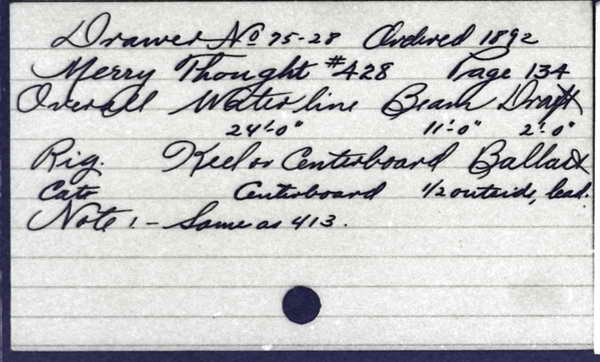 Drawer No 75-28 Ordered 1892
Merry Thought #428 Page 134
Overall Waterline Beam Draft
24'-0" 11'-0" 2'-0"
Rig. Keel or Centerboard Ballast
Cat Centerboard 1/2 outside, lead.
Note: - Same as 413.